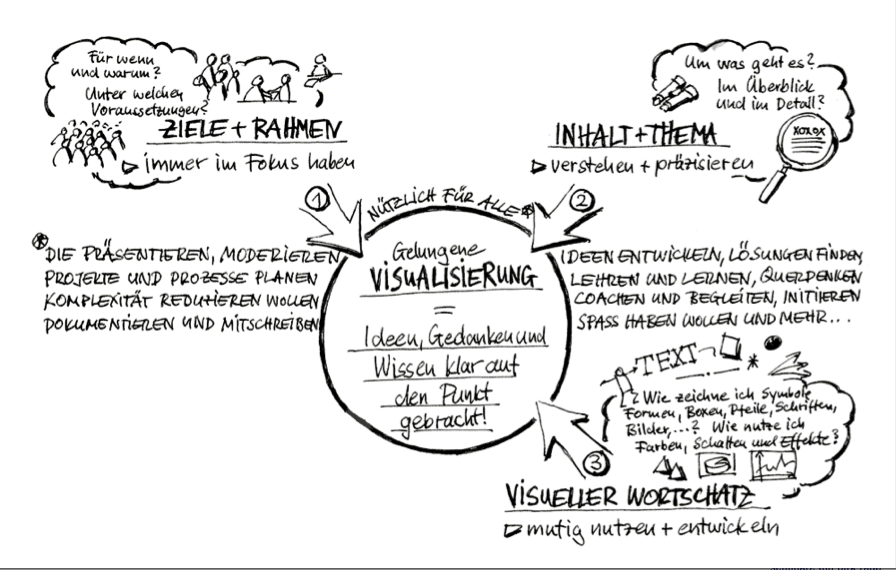 Für wenn
und warum?
Unter welchen
Voraussetzungen?
ZIELE + RAHMEN
immer im Fokus haben
1
Um was geht es?
Im Überblick
und im Detail?
XOXOX
INHALT + THEMA
verstehen + präzisieren
2
NÜTZLICH FÜR ALLE *
Gelungene
VISUALISIERUNG
=
Ideen, Gedanken und
Wissen klar auf
den Punkt
gebracht!
* DIE PRÄSENTIEREN, MODERIEREN
PROJEKTE UND PROZESSE PLANEN
KOMPLEXITÄT REDUZIEREN WOLLEN
DOKUMENTIEREN UND MITSCHREIBEN
IDEEN ENTWICKELN, LÖSUNGEN FINDEN,
LEHREN UND LERNEN, QUERDENKEN
COACHEN UND BEGLEITEN, INITIIEREN
SPASS HABEN WOLLEN UND MEHR...
TEXT
*
? Wie zeichne ich Symbole
Formen, Boxen, Pfeile, Schriften,
Bilder,...? Wie nutze ich
Farben, Schatten und Effekte?
3
VISUELLER WORTSCHATZ
mutig nutzen + entwickeln